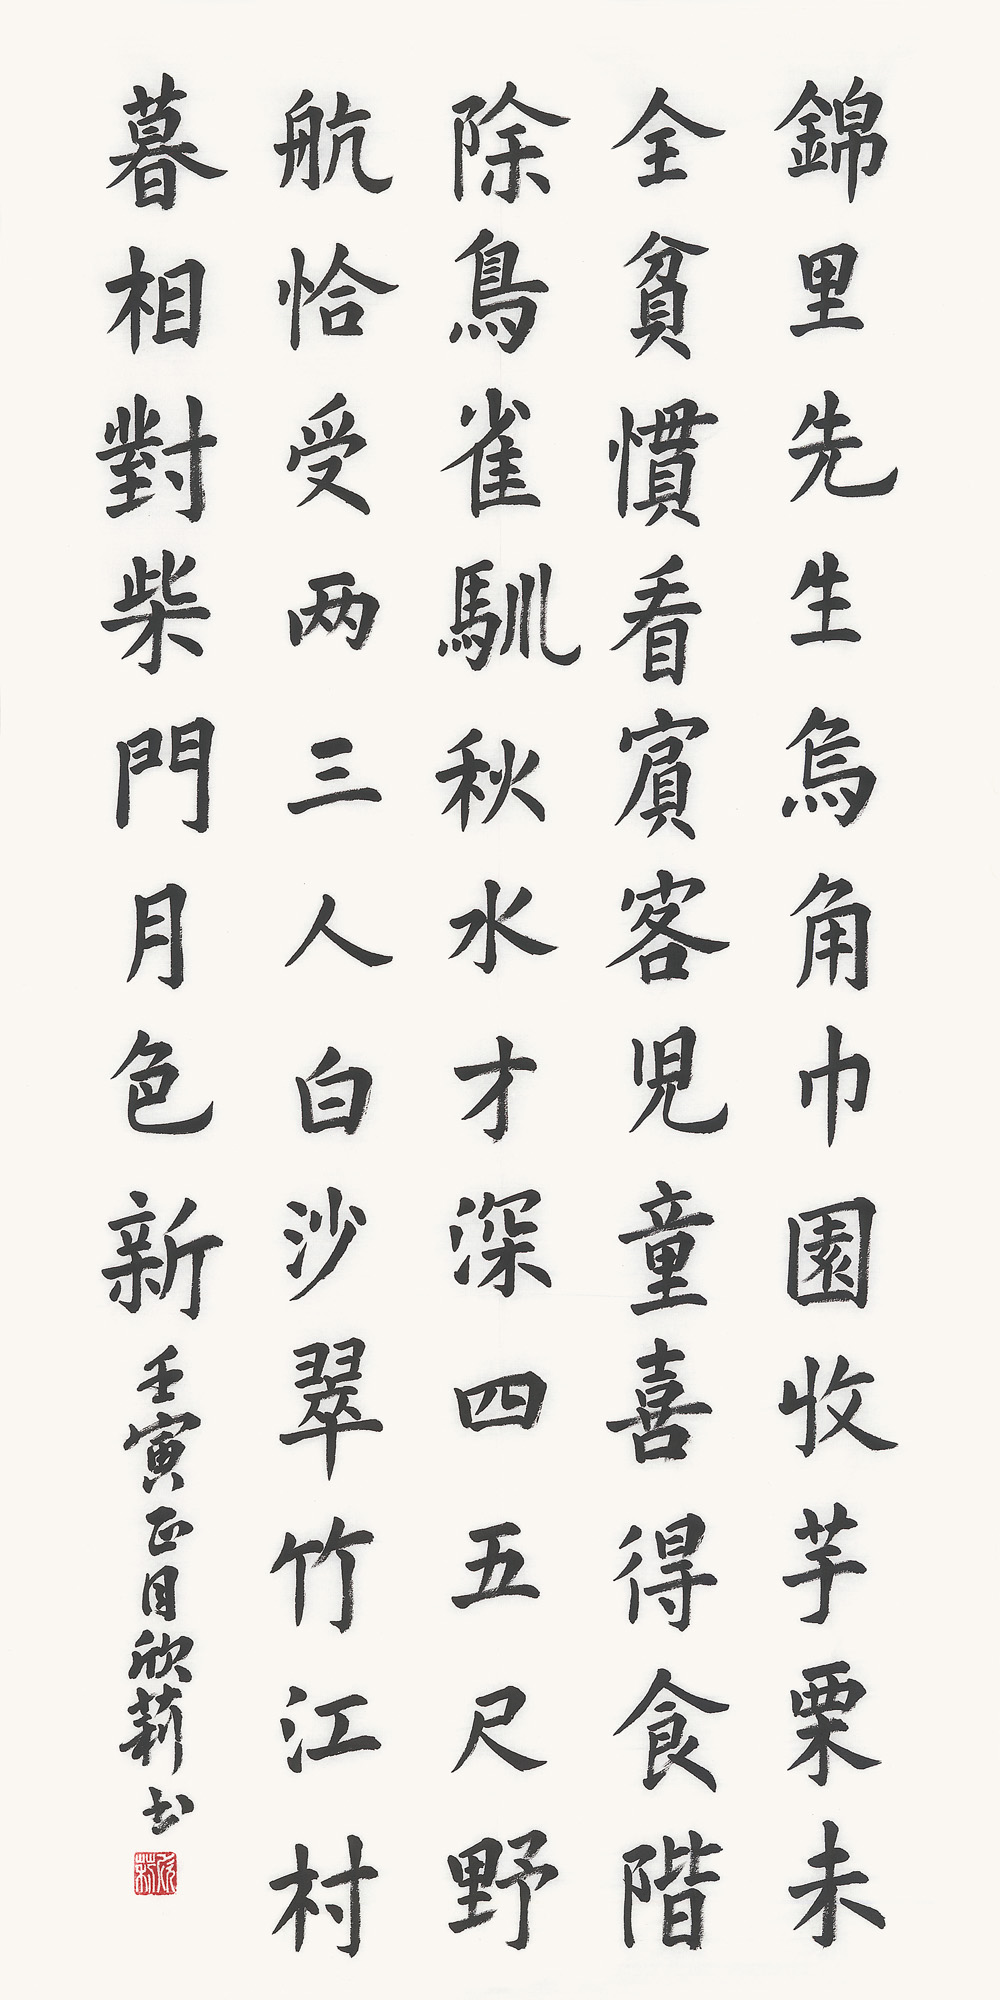 錦里先生烏角巾園收芋栗未
全貧慣看賓客児童喜得食階
除鳥雀馴秋水才深四五尺野
航恰受两三人白沙翠竹江村
暮相對柴門月色新
壬寅正月欣莉书
欣莉